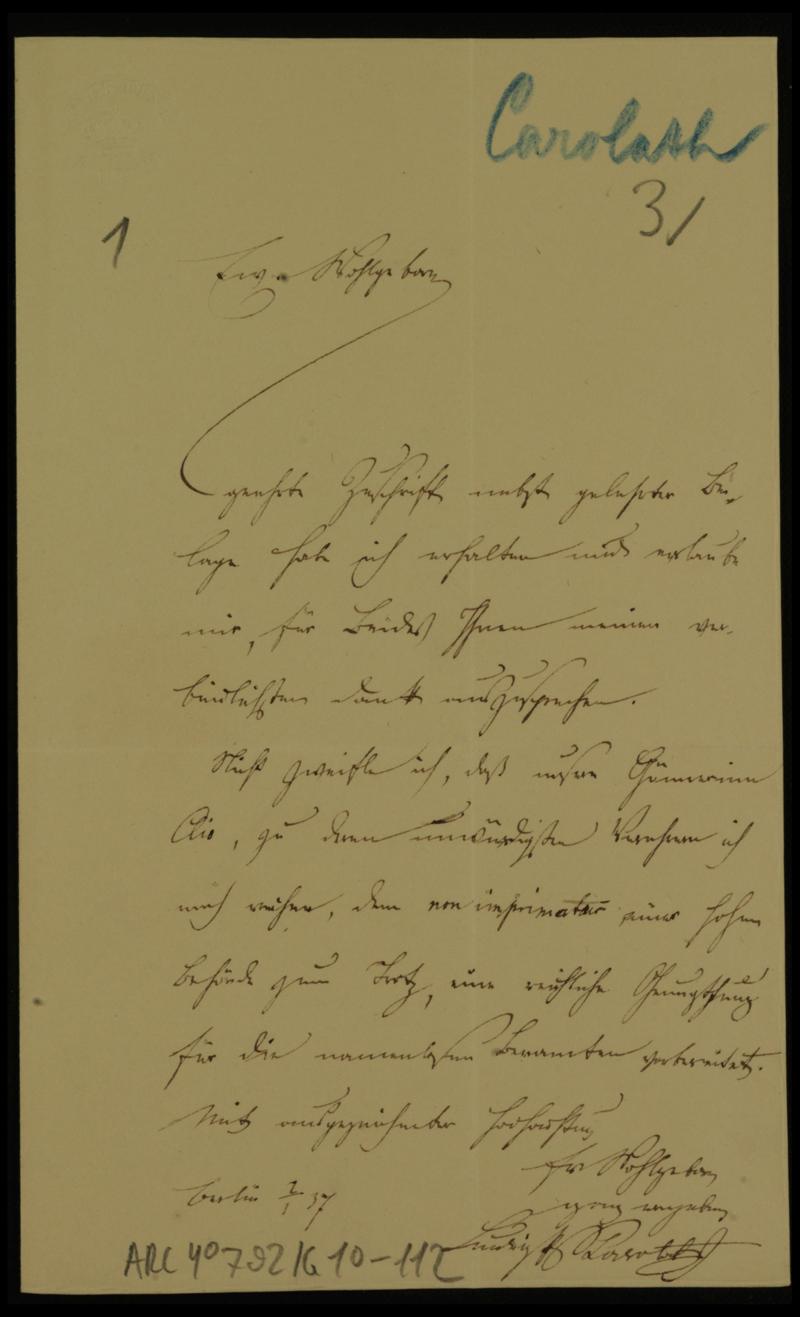 Carolath
31
1
Ew. Wohlgeborn
geehrte Zuschrift nebst gelehrter Bei-
lage habe ich erhalten und erlaube
mir, für Beides Ihnen meinen ver-
bindlichsten Dank auszusprechen.
Nicht zweifle ich, daß unsere Gönnerinn
Clio, zu deren unwürdigsten Verehrern ich
mich rechne, dem non imprimatur einer hohen
Behörde zum Trotz, eine reichliche Genugthuung
für die namenlosen Beamten vorbereitet.
Mit ausgezeichneter Hochachtung
Ew Wohlgeborn
ganz ergebner
Berlin 37
Carolath
ARC 4° 792/G 10-112